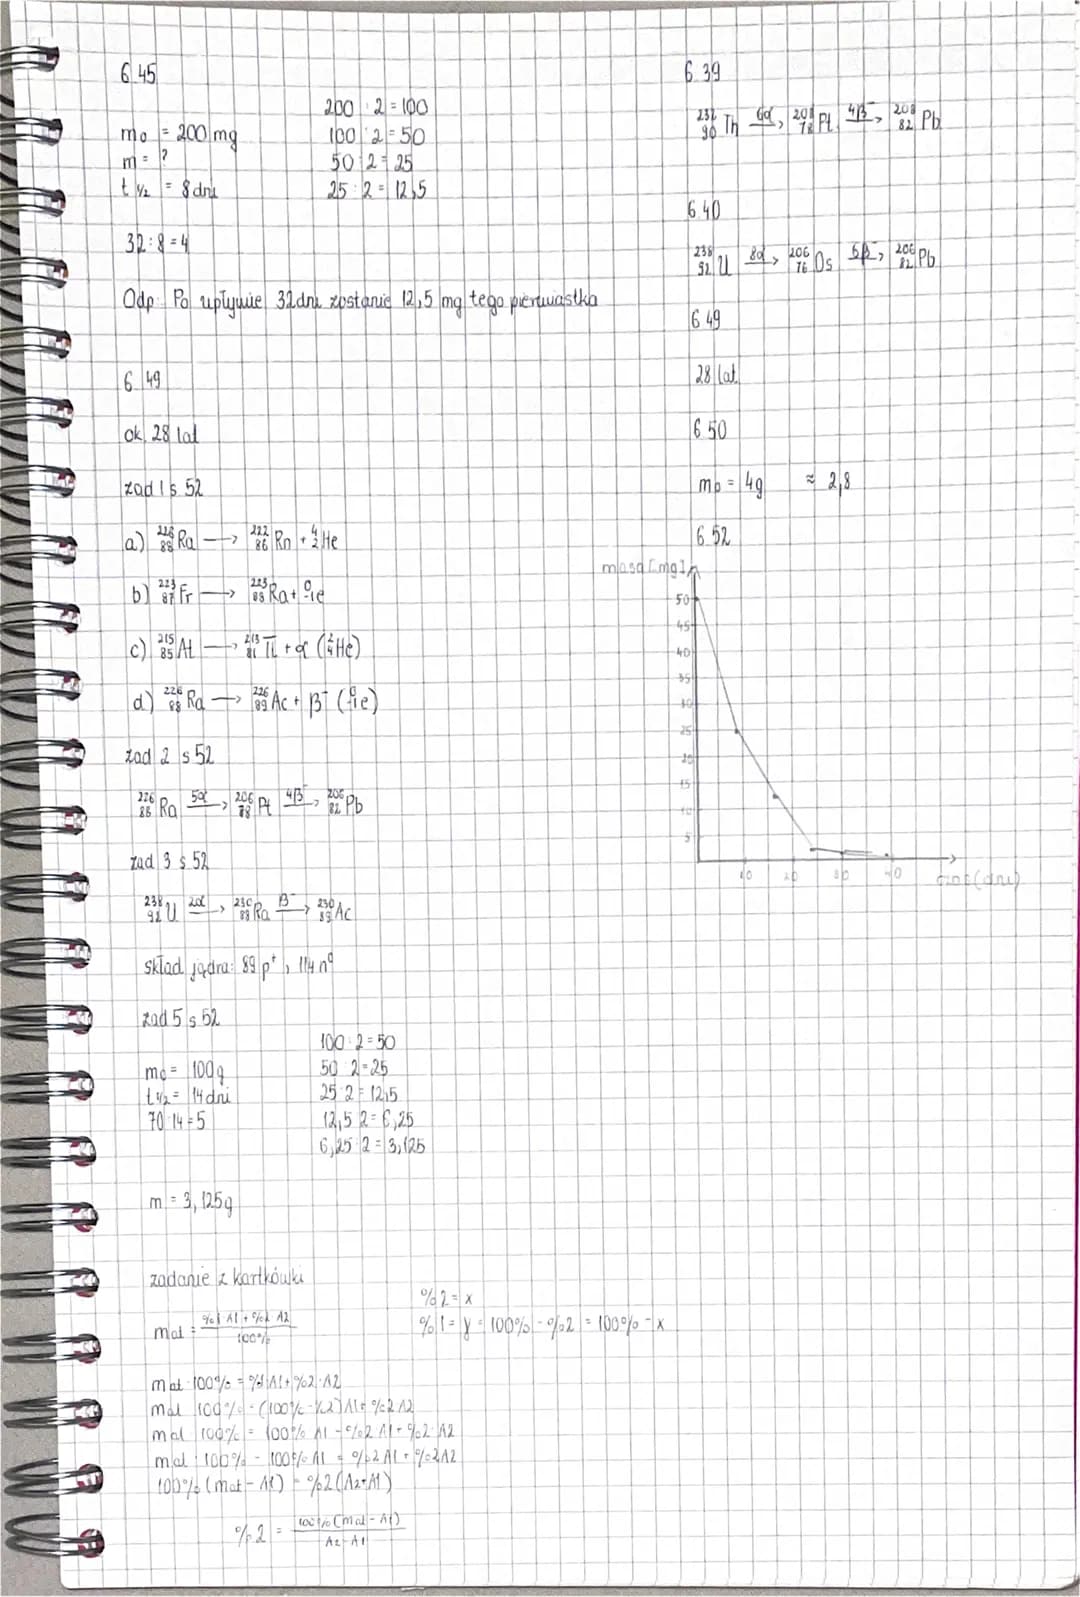 6.45
m₀ = 200 mg
m = ?
t ½ = 8 dni
200 : 2 = 100
100 : 2 = 50
50 : 2 = 25
25 : 2 = 12,5
32 : 8 = 4
Odp: Po upływie 32 dni zostanie 12,5 mg tego pierwiastka
6.49
ok. 28 lat
zad 1 s 52
a) ²²⁶₈₈Ra → ²²²₈₆Rn + ⁴₂He
b) ²²³₈₇Fr → ²²³₈₈Ra + ⁰₋₁e
c) ²¹⁵₈₅At → ²¹³₈₁Tl + α (²₄He)
d) ²²⁶₈₈Ra → ²²⁶₈₉Ac + β⁻ (⁰₋₁e)
zad 2 s 52
²²⁶₈₈Ra 5α → ²⁰⁶₇₈Pt 4β⁻ → ²⁰⁶₈₂Pb
zad 3 s 52
²³⁸₉₂U 2α → ²³⁰₈₈Ra β⁻ → ²³⁰₈₉Ac
skład jądra: 89 p⁺, 114 n⁰
zad 5 s 52
m₀ = 100g
t ½ = 14 dni
70 : 14 = 5
100 : 2 = 50
50 : 2 = 25
25 : 2 = 12,5
12,5 : 2 = 6,25
6,25 : 2 = 3,125
m = 3,125g
zadanie z kartkówki
mat = %1 · A1 + %2 · A2 / 100%
%2 = x
%1 = y = 100% - %2 = 100% - x
mat · 100% = %1 · A1 + %2 · A2
mat · 100% = (100% - %2) A1 + %2 A2
mat · 100% = 100% · A1 - %2 A1 + %2 · A2
mat · 100% - 100% A1 = %2 A1 + %2 A2
100% (mat - A1) = %2 (A2 + A1)
%2 = 100% (mat - A1) / A2 - A1
6.39
²³²₉₀Th 6α → ²⁰⁸₇₈Pt 4β⁻ → ²⁰⁸₈₂Pb
6.40
²³⁸₉₂U 8α → ²⁰⁶₇₆Os 6β⁻ → ²⁰⁶₈₂Pb
6.49
28 lat
6.50
m₀ = 4g ≈ 2,8
6.52
masa [mg]
50
45
40
35
30
25
20
15
10
5
10 20 30 40
czas (dni)